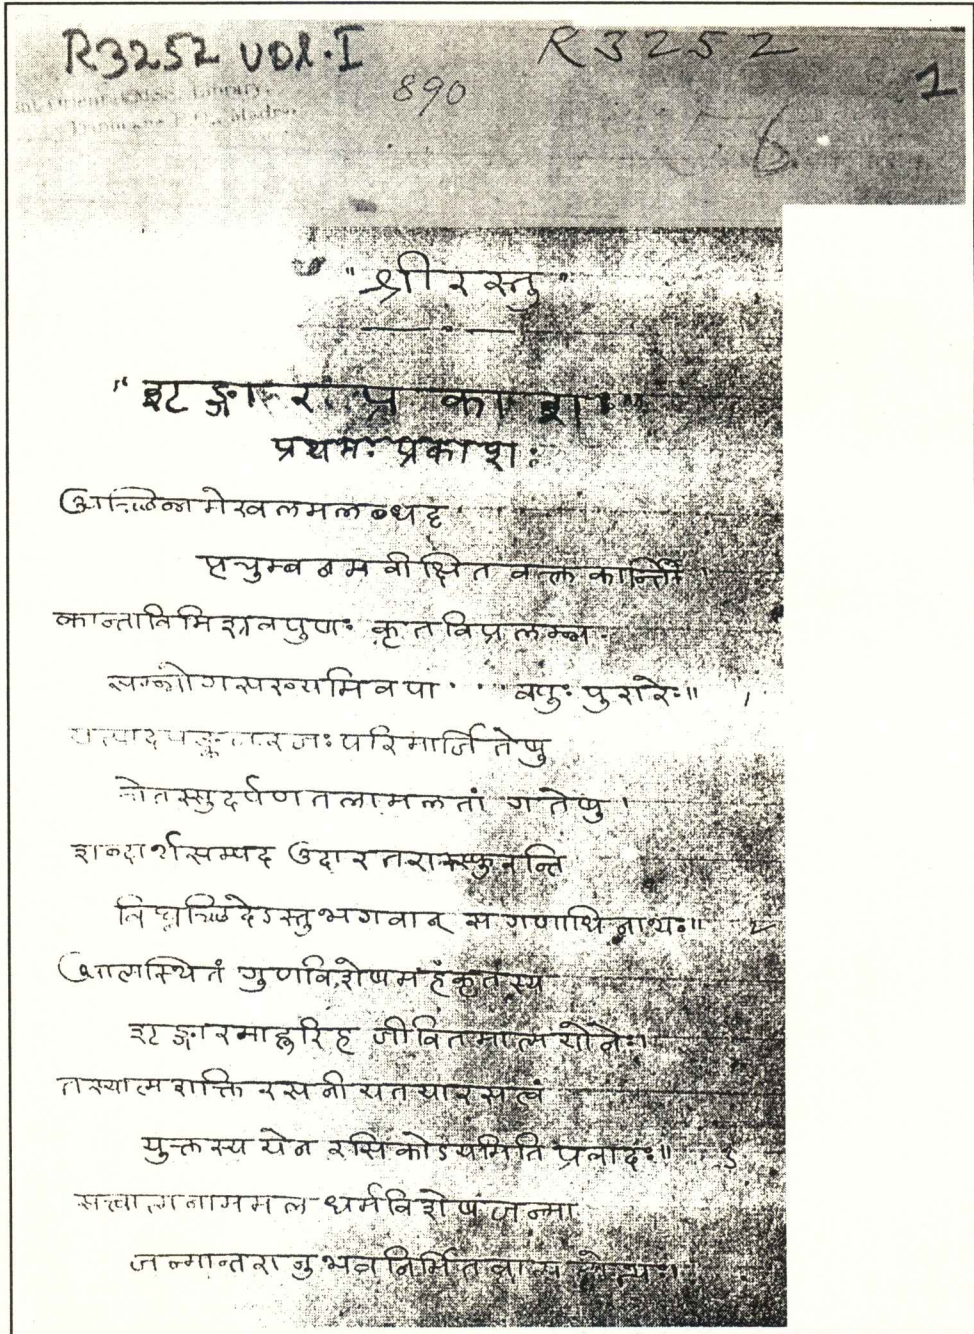 R3252 VOL.I R3252
890 1
56
Library,
Madras
"श्रीरस्तु"
"शृङ्गारप्रकाशः"
प्रथमः प्रकाशः
अच्छिन्नमेखलमलब्धदृ
ढचुम्बनमवीक्षितवक्त्रकान्ति ।
कान्ताविमिश्रवपुषः कृतविप्रलम्भ
सम्भोगसख्यमिवपा ... वपुः पुरारेः॥ १
यत्पादपङ्कजरजः परिमार्जितेषु
चेतस्सुदर्पणतलामलतां गतेषु ।
शब्दार्थसम्पद उदारतरास्स्फुरन्ति
विघ्नच्छिदेऽस्तु भगवान् स गणाधिनाथः॥ २
आत्मस्थितं गुणविशेषमहंकृतस्य
शृङ्गारमाहुरिह जीवितमात्मयोनेः।
तस्यात्मशक्तिरसनीयतयारसत्वं
युक्तस्य येन रसिकोऽयमिति प्रवादः॥ ३
सत्त्वात्मनाममलधर्मविशेषजन्मा
जन्मान्तरानुभवनिर्मितवास